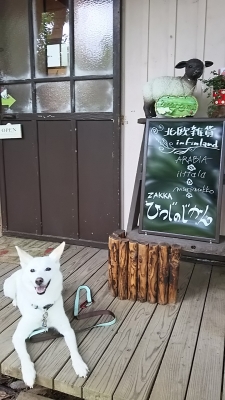 OPEN
北欧雑貨
in Finland
ARABIA
iittala
marimekko
ZAKKA
ひつじのじかん